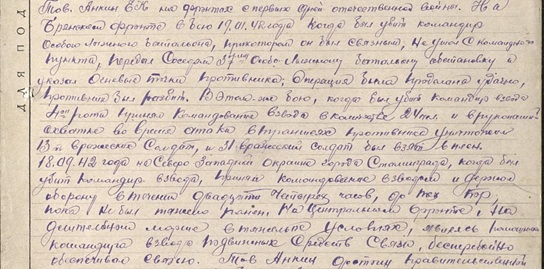 Тов. Анкин В.П. на фронтах с первых дней отечественной войны. На
Брянском фронте в бою 19.01.42 года когда был убит командир
Особого Лыжного батальона, при котором он был связным, не ушел с командного
пункта, передал соседям 3му Особо Лыжному батальону обстановку и
указал огневые точки противника. Операция была проделана удачно,
противник был разбит. В этом же бою, когда был убит командир взвода
роты принял командование взвода в количестве 24 чел. и в рукопашной
схватке во время атаки в траншеях противника уничтожено
13й вражеских солдат, и 31 вражеский солдат был взят в плен.
18.09.42 года на Северо Западной окраине города Сталинграда, когда был
убит командир взвода, принял командование взводом и держал
оборону в течении двадцати четырех часов, до тех пор,
пока не был тяжело ранен. На Центральном фронте, на
марше в тяжелых условиях, являясь помощником
командира взвода подвижных средств связи, бесперебойно
обеспечивал связью. Тов Анкин достоин правительственной
ДЛЯ ПОД